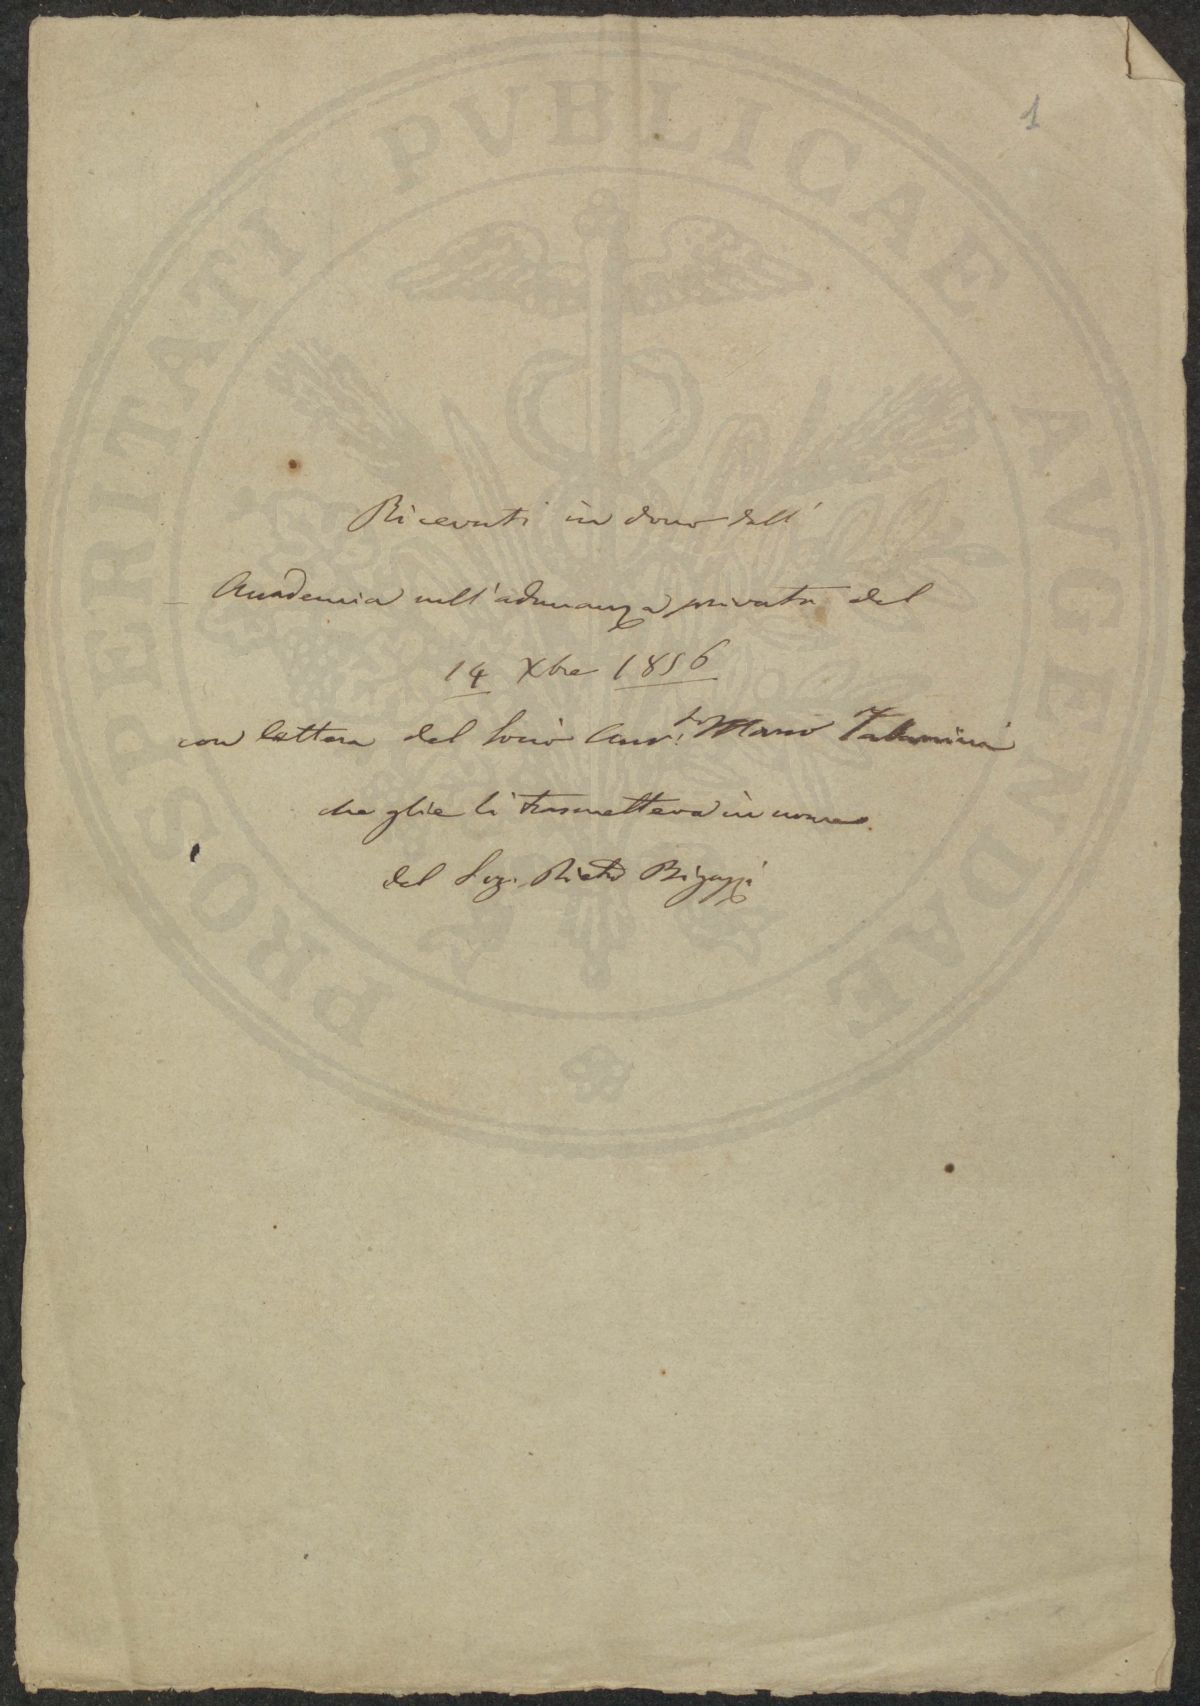 1
PROSPERITATI PVBLICAE AVGENDAE
Ricevuti in dono dall'
Accademia nell'adunanza privata del
14 Xbre 1856
con lettera del Socio Mario
che glie li trasmetteva in nome
del Sig. Pietro Bigazzi